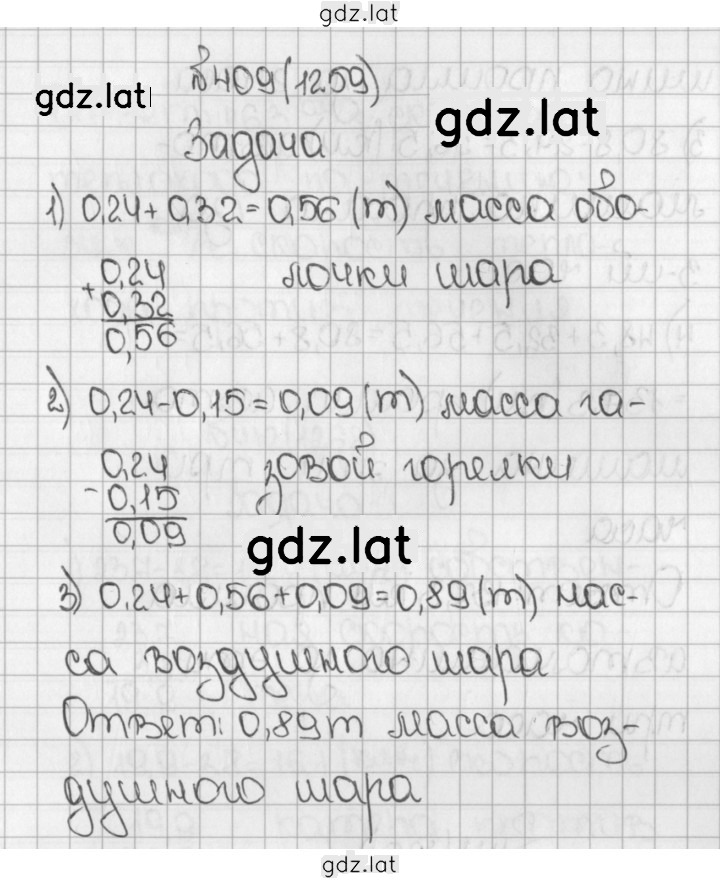 gdz.lat
№409(1259)
gdz.lat
gdz.lat
Задача
1) 0,24+0,32=0,56 (т) масса обо-
0,24 лочки шара
+
0,32
0,56
2) 0,24-0,15=0,09 (т) масса га-
0,24 зовой горелки
-
0,15
0,09
gdz.lat
3) 0,24+0,56+0,09=0,89 (т) мас-
са воздушного шара
Ответ: 0,89т масса воз-
душного шара
gdz.lat